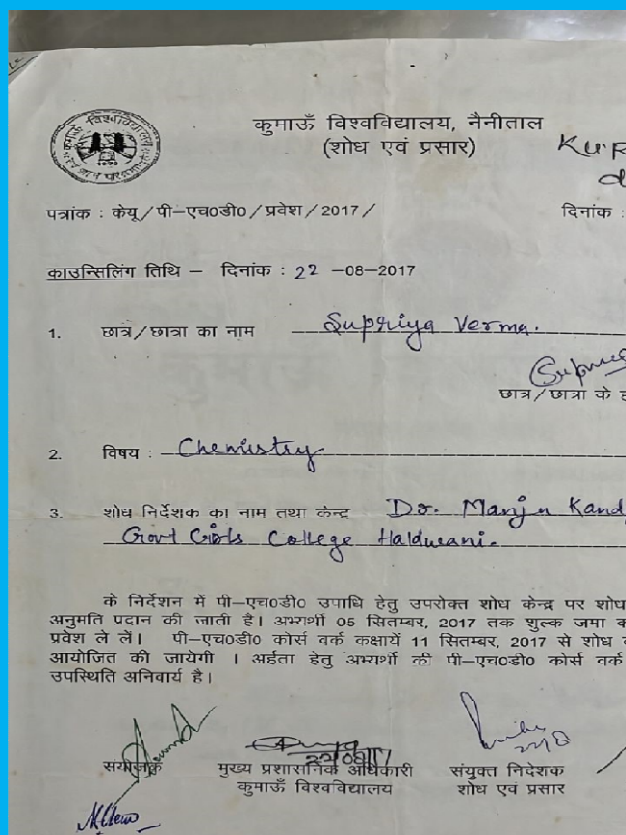 कुमाऊँ विश्वविद्यालय, नैनीताल
(शोध एवं प्रसार)
पत्रांक : केयू/पी-एच0डी0/प्रवेश/2017/
दिनांक :
काउन्सिलिंग तिथि - दिनांक : 22 -08-2017
1. छात्र/छात्रा का नाम Supriya Verma.
छात्र/छात्रा के
2. विषय : Chemistry
3. शोध निर्देशक का नाम तथा केन्द्र Dr. Manju
Govt Girls College Haldwani.
के निर्देशन में पी-एच0डी0 उपाधि हेतु उपरोक्त शोध केन्द्र पर शोध
अनुमति प्रदान की जाती है। अभ्यर्थी 05 सितम्बर, 2017 तक शुल्क जमा
प्रवेश ले लें। पी-एच0डी0 कोर्स वर्क कक्षायें 11 सितम्बर, 2017 से शोध
आयोजित की जायेगी । अर्हता हेतु अभ्यर्थी की पी-एच0डी0 कोर्स वर्क
उपस्थिति अनिवार्य है।
संयोजक
मुख्य प्रशासनिक अधिकारी
कुमाऊँ विश्वविद्यालय
संयुक्त निदेशक
शोध एवं प्रसार